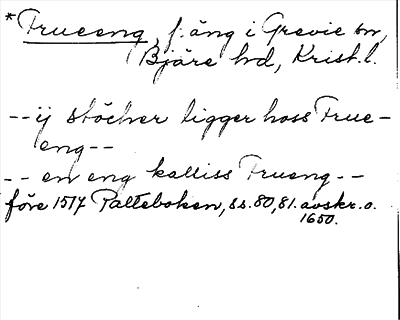 *Trueeng, f. äng i Grevie sn,
Bjäre hd, Krist. l.
-- ij stöcker ligger hoss True-
eng --
-- en eng kalliss Trueng --
före 1517 Palteboken, ss. 80, 81. avskr. o.
1650.